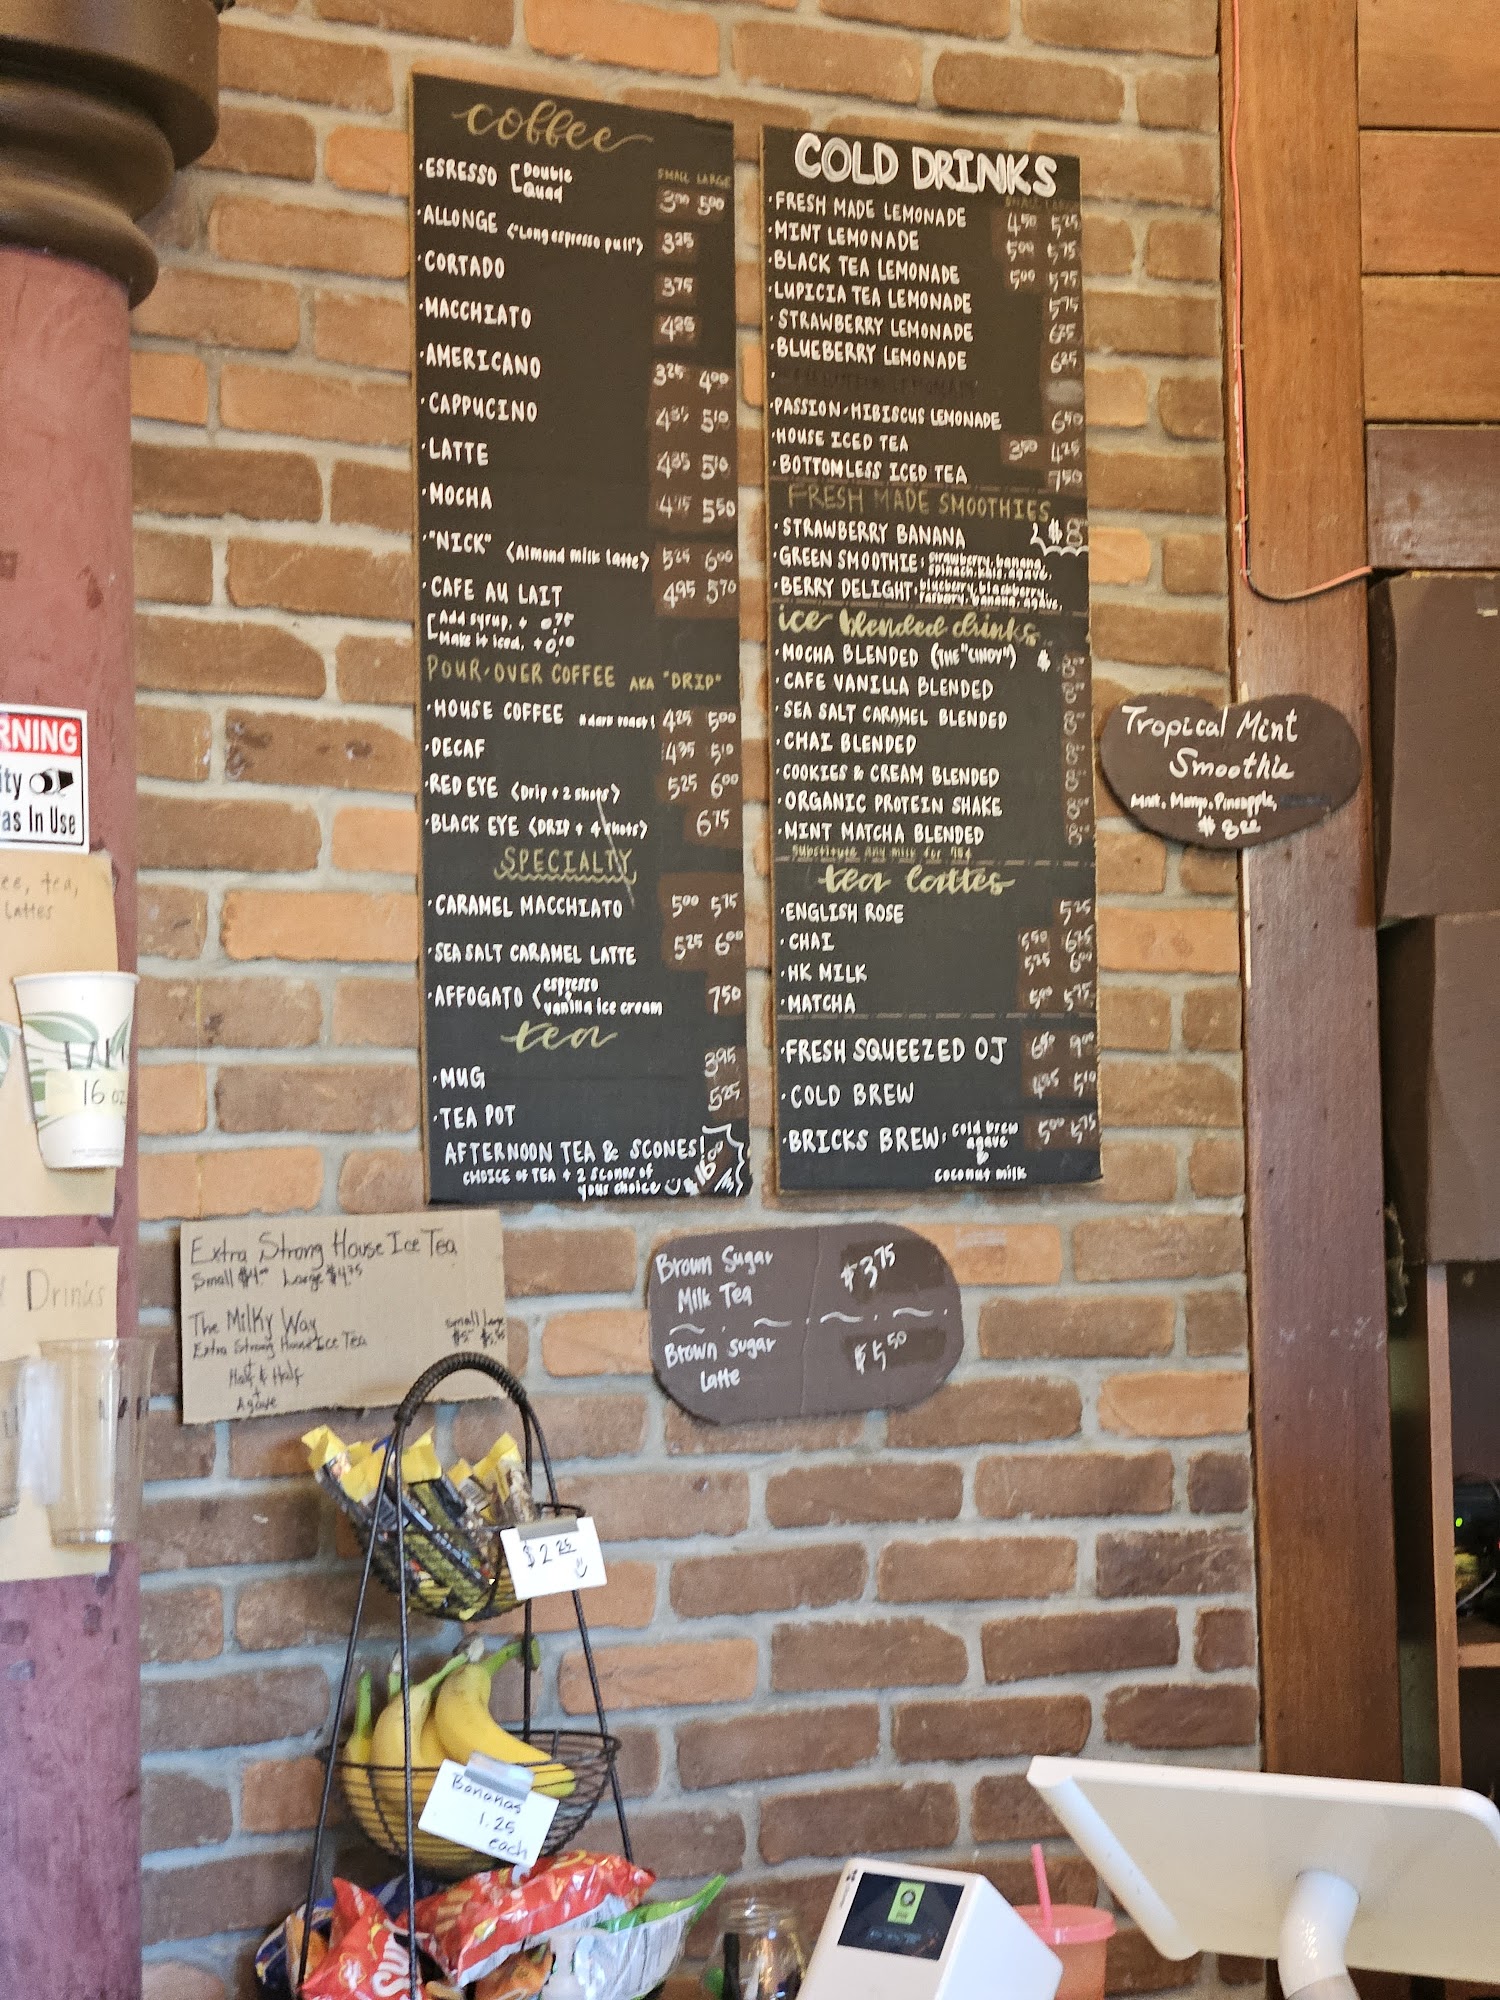 coffee
SMALL LARGE
·ESRESSO [Double
Quad 3⁰⁰ 5⁰⁰
·ALLONGE ("Long espresso pull") 3²⁵
·CORTADO 3⁷⁵
·MACCHIATO 4²⁵
·AMERICANO 3²⁵ 4⁰⁰
·CAPPUCINO 4³⁵ 5¹⁰
·LATTE 4³⁵ 5¹⁰
·MOCHA 4⁷⁵ 5⁵⁰
·"NICK" (Almond milk latte) 5²⁵ 6⁰⁰
·CAFE AU LAIT 4⁹⁵ 5⁷⁰
[Add syrup, + 0.⁷⁵
Make it iced, +0.¹⁰
POUR-OVER COFFEE AKA "DRIP"
·HOUSE COFFEE *dark roast! 4²⁵ 5⁰⁰
·DECAF 4³⁵ 5¹⁰
·RED EYE (Drip + 2 shots) 5²⁵ 6⁰⁰
·BLACK EYE (DRIP + 4 shots) 6⁷⁵
SPECIALTY
·CARAMEL MACCHIATO 5⁰⁰ 5⁷⁵
·SEA SALT CARAMEL LATTE 5²⁵ 6⁰⁰
·AFFOGATO (espresso
& vanilla ice cream 7⁵⁰
tea
·MUG 3⁹⁵
·TEA POT 5²⁵
AFTERNOON TEA & SCONES!
CHOICE OF TEA + 2 scones of
your choice $16⁰⁰
COLD DRINKS
SMALL LARGE
·FRESH MADE LEMONADE 4⁵⁰ 5²⁵
·MINT LEMONADE 5⁰⁰ 5⁷⁵
·BLACK TEA LEMONADE 5⁰⁰ 5⁷⁵
·LUPICIA TEA LEMONADE 5⁷⁵
·STRAWBERRY LEMONADE 6²⁵
·BLUEBERRY LEMONADE 6²⁵
·PASSION-HIBISCUS LEMONADE 6⁵⁰
·HOUSE ICED TEA 3⁵⁰ 4²⁵
·BOTTOMLESS ICED TEA 7⁵⁰
FRESH MADE SMOOTHIES
·STRAWBERRY BANANA $8
·GREEN SMOOTHIE: strawberry, banana,
spinach, kale, agave,
·BERRY DELIGHT: blueberry, blackberry,
banana, agave,
ice blended drinks
·MOCHA BLENDED (THE "CINDY") $ 8
·CAFE VANILLA BLENDED 8
·SEA SALT CARAMEL BLENDED 8
·CHAI BLENDED 8
·COOKIES & CREAM BLENDED 8
·ORGANIC PROTEIN SHAKE 8
·MINT MATCHA BLENDED 8
Substitute any milk for 75¢
tea lattes
·ENGLISH ROSE 5²⁵
·CHAI 5⁵⁰ 6²⁵
·HK MILK 5²⁵ 6⁰⁰
·MATCHA 5⁰⁰ 5⁷⁵
·FRESH SQUEEZED OJ 9⁰⁰
·COLD BREW 4³⁵ 5¹⁰
·BRICKS BREW: cold brew
agave
&
coconut milk 5⁰⁰ 5⁷⁵
Tropical Mint
Smoothie
Mint, Mango, Pineapple,
$8
Extra Strong House Ice Tea
Small $4 Large $4.75
The Milky Way
Small Large
Extra Strong House Ice Tea
+
Half & Half
+
Agave
Brown Sugar
Milk Tea $3⁷⁵
Brown Sugar
Latte $5⁵⁰
$2.25
Bananas
1.25
each
RNING
ity
as In Use
ee, tea,
Lattes
16 oz
Drinks